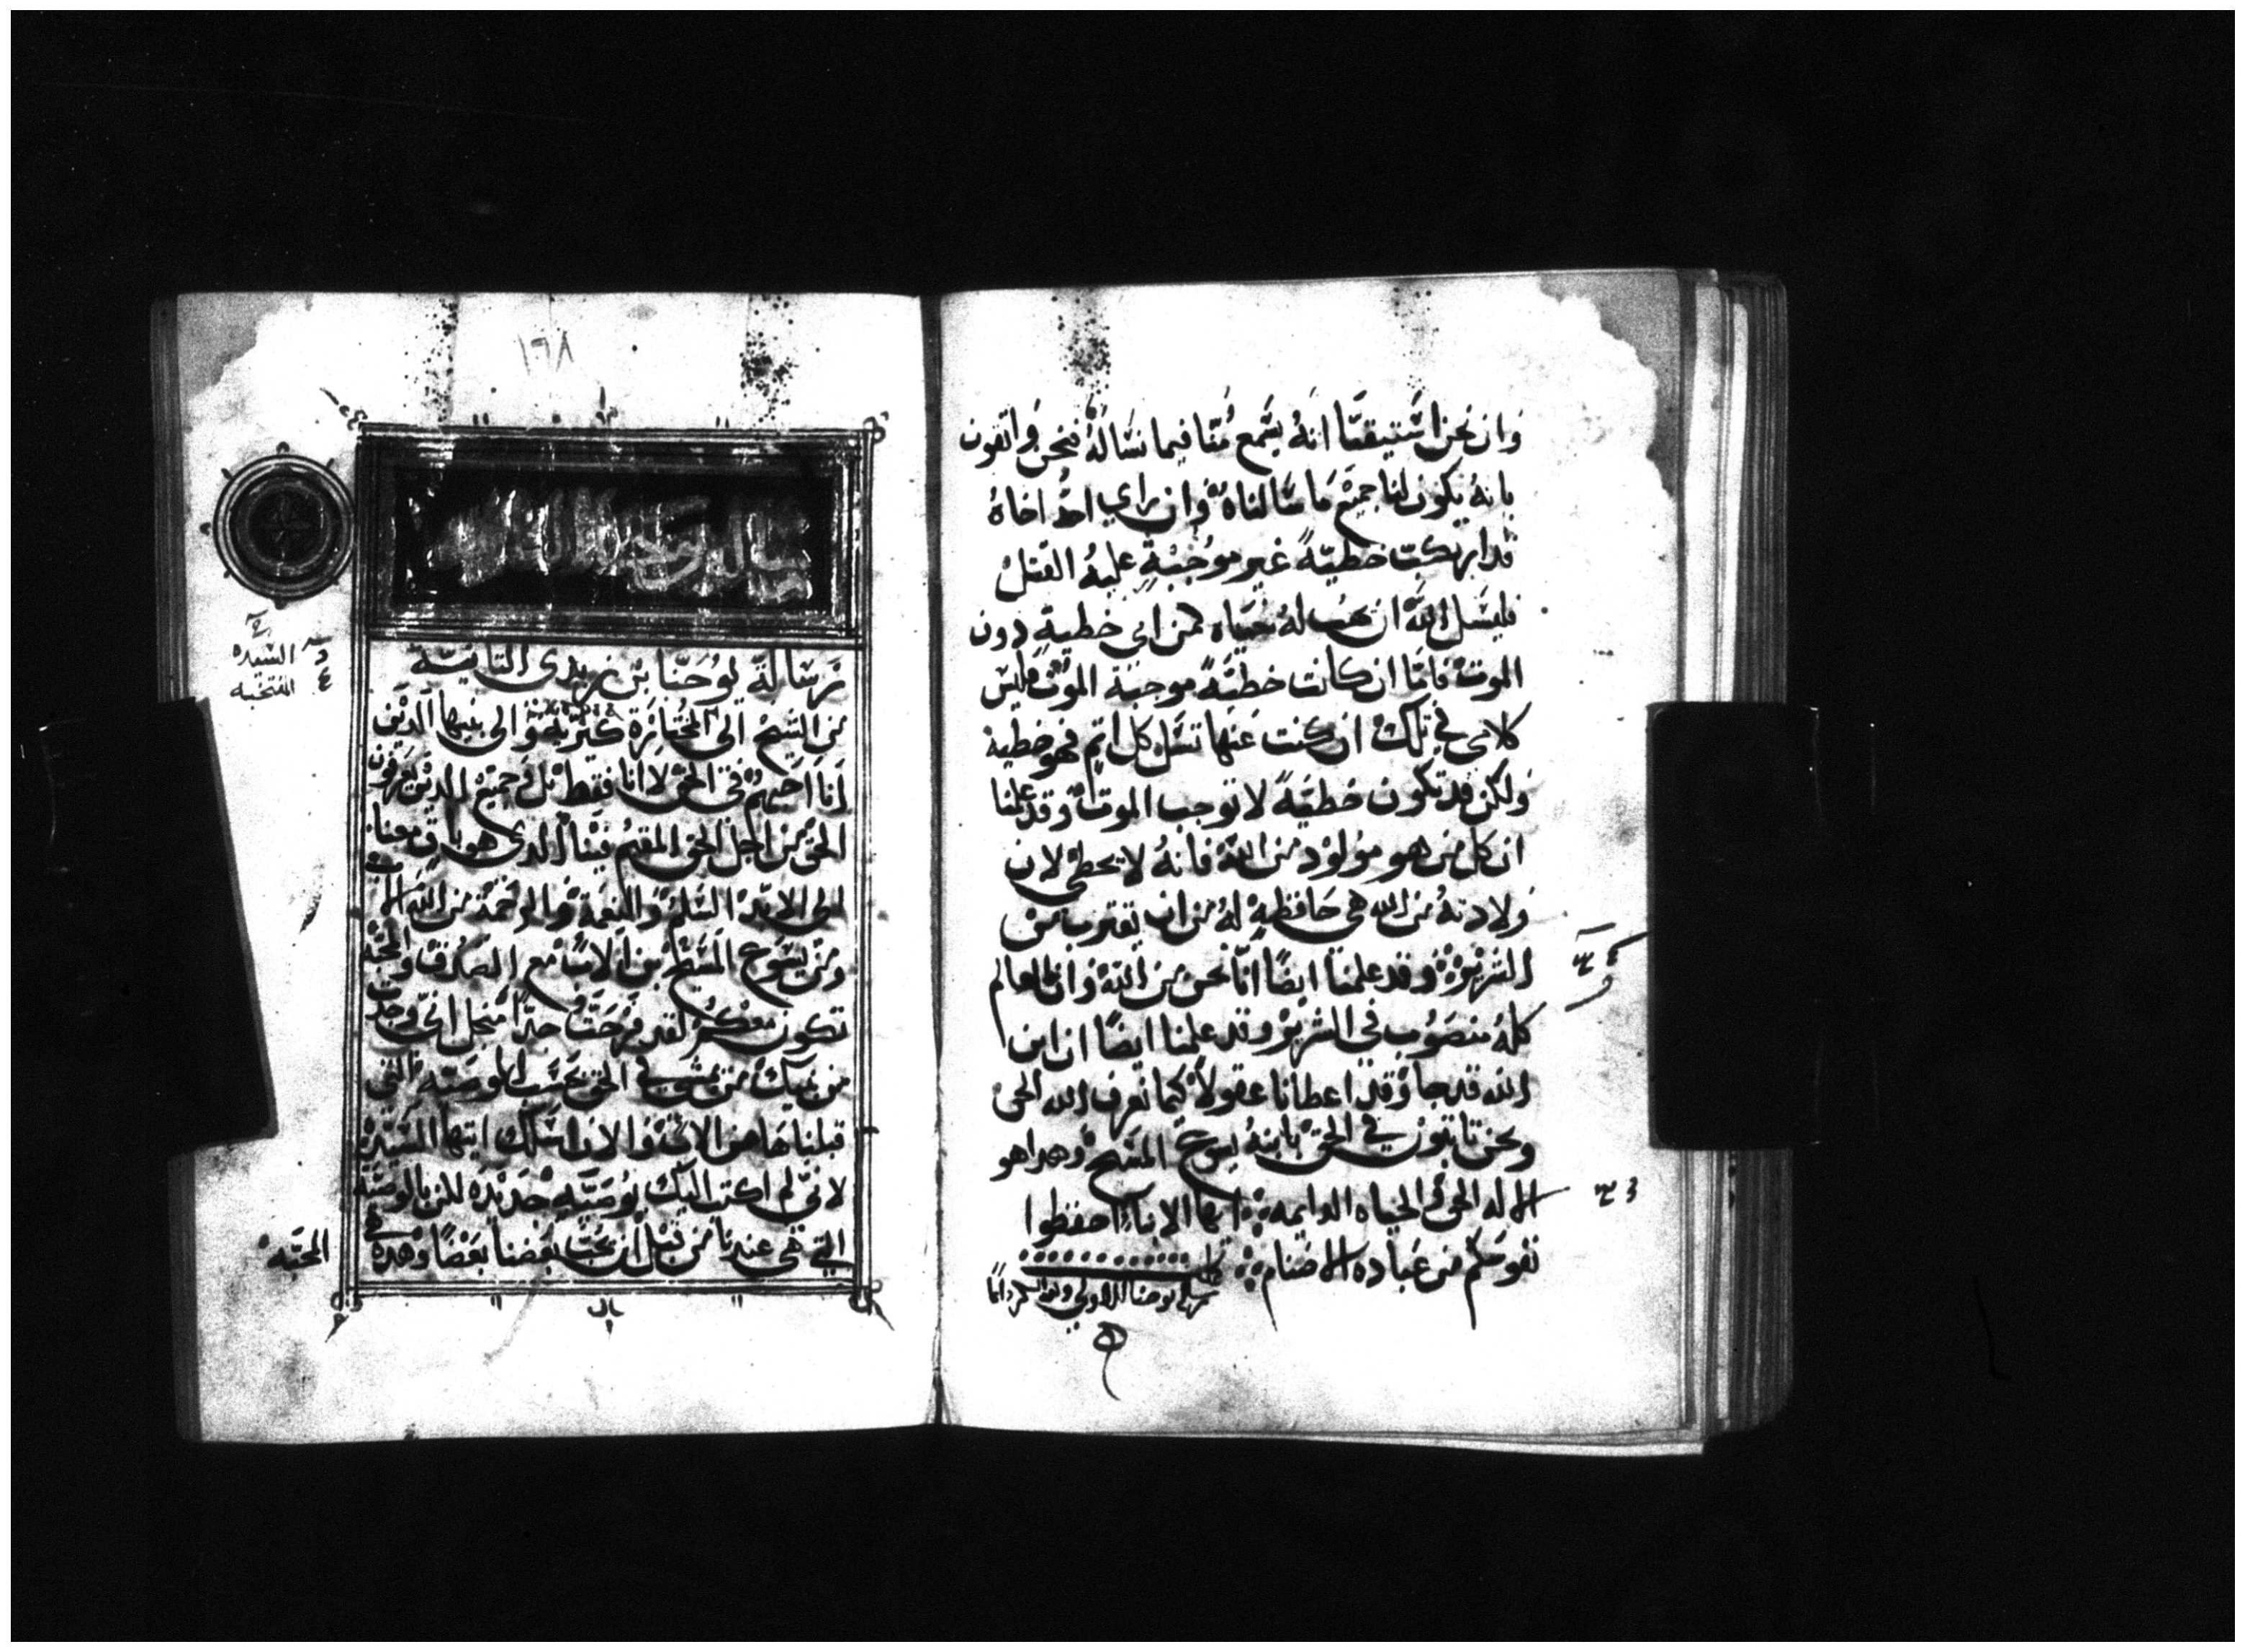 وان نحن استيقنا انه يسمع منا فيما نساله فنحن واثقون
بانه يكون لنا جميع ما سالناه وان راي احد اخاه
قد ارتكبت خطيه غير موجبة عليه القتل
فليسل الله ان يهب له حياه كمن اتى خطية دون
الموت فاما ان كانت خطيه موجبة الموت فليس
كلامي في تلك ان كنت عنها تسل كل اثم فهو خطية
ولكن قد تكون خطيه لا توجب الموت وقد علمنا
ان كل من هو مولود من الله فانه لا يخطي لان
ولادته من الله هي حافظة له من ان يقترب من
الشرير وقد علمنا ايضا انا نحن من الله وان العالم
كله منصوب في الشرير وقد علمنا ايضا ان ابن
الله قد جا وقد اعطانا عقولا كيما نعرف الله الحق
ونحن ثابتون في الحق بابنه يسوع المسيح وهدا هو
الاله الحق والحياه الدايمه ايها الابنا احفظوا
نفوسكم من عباده الاصنام
يوحنا الاولى
١٦٨
رسالة يوحنا بن زبدى الثانية
من الشيخ الى المختارة كيرية والى بنيها الدين
انا احبهم في الحق لا انا فقط بل وجميع الدين يعرفون
الحق من اجل الحق المقيم فينا الدى هو باق معنا
الى الابد السلم والنعمة والرحمة من الله الاب
ومن يسوع المسيح بن الاب مع الصدق والمحبة
تكون معكم لقد فرحت جدا من اجل اني وجدت
من بنيك من يمشي في الحق بحسب الوصيه التي
قبلناها من الاب والان اسلك ايتها السيده
لاني لم اكتب اليك بوصية جديده لكن بالوصية
التي هي عندنا من قبل ان يحب بعضنا بعضا وهده هي
السيده
المنتخبه
المحبه